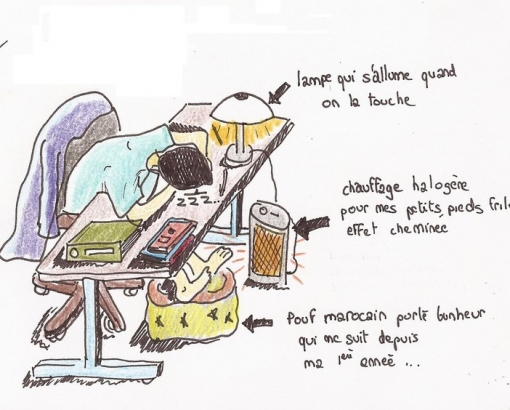 lampe qui s'allume quand
on la touche
zzz...
chauffage halogène
pour mes petits pieds fril
effet cheminée
Pouf marocain porte bonheur
qui me suit depuis
ma 1ère année ...